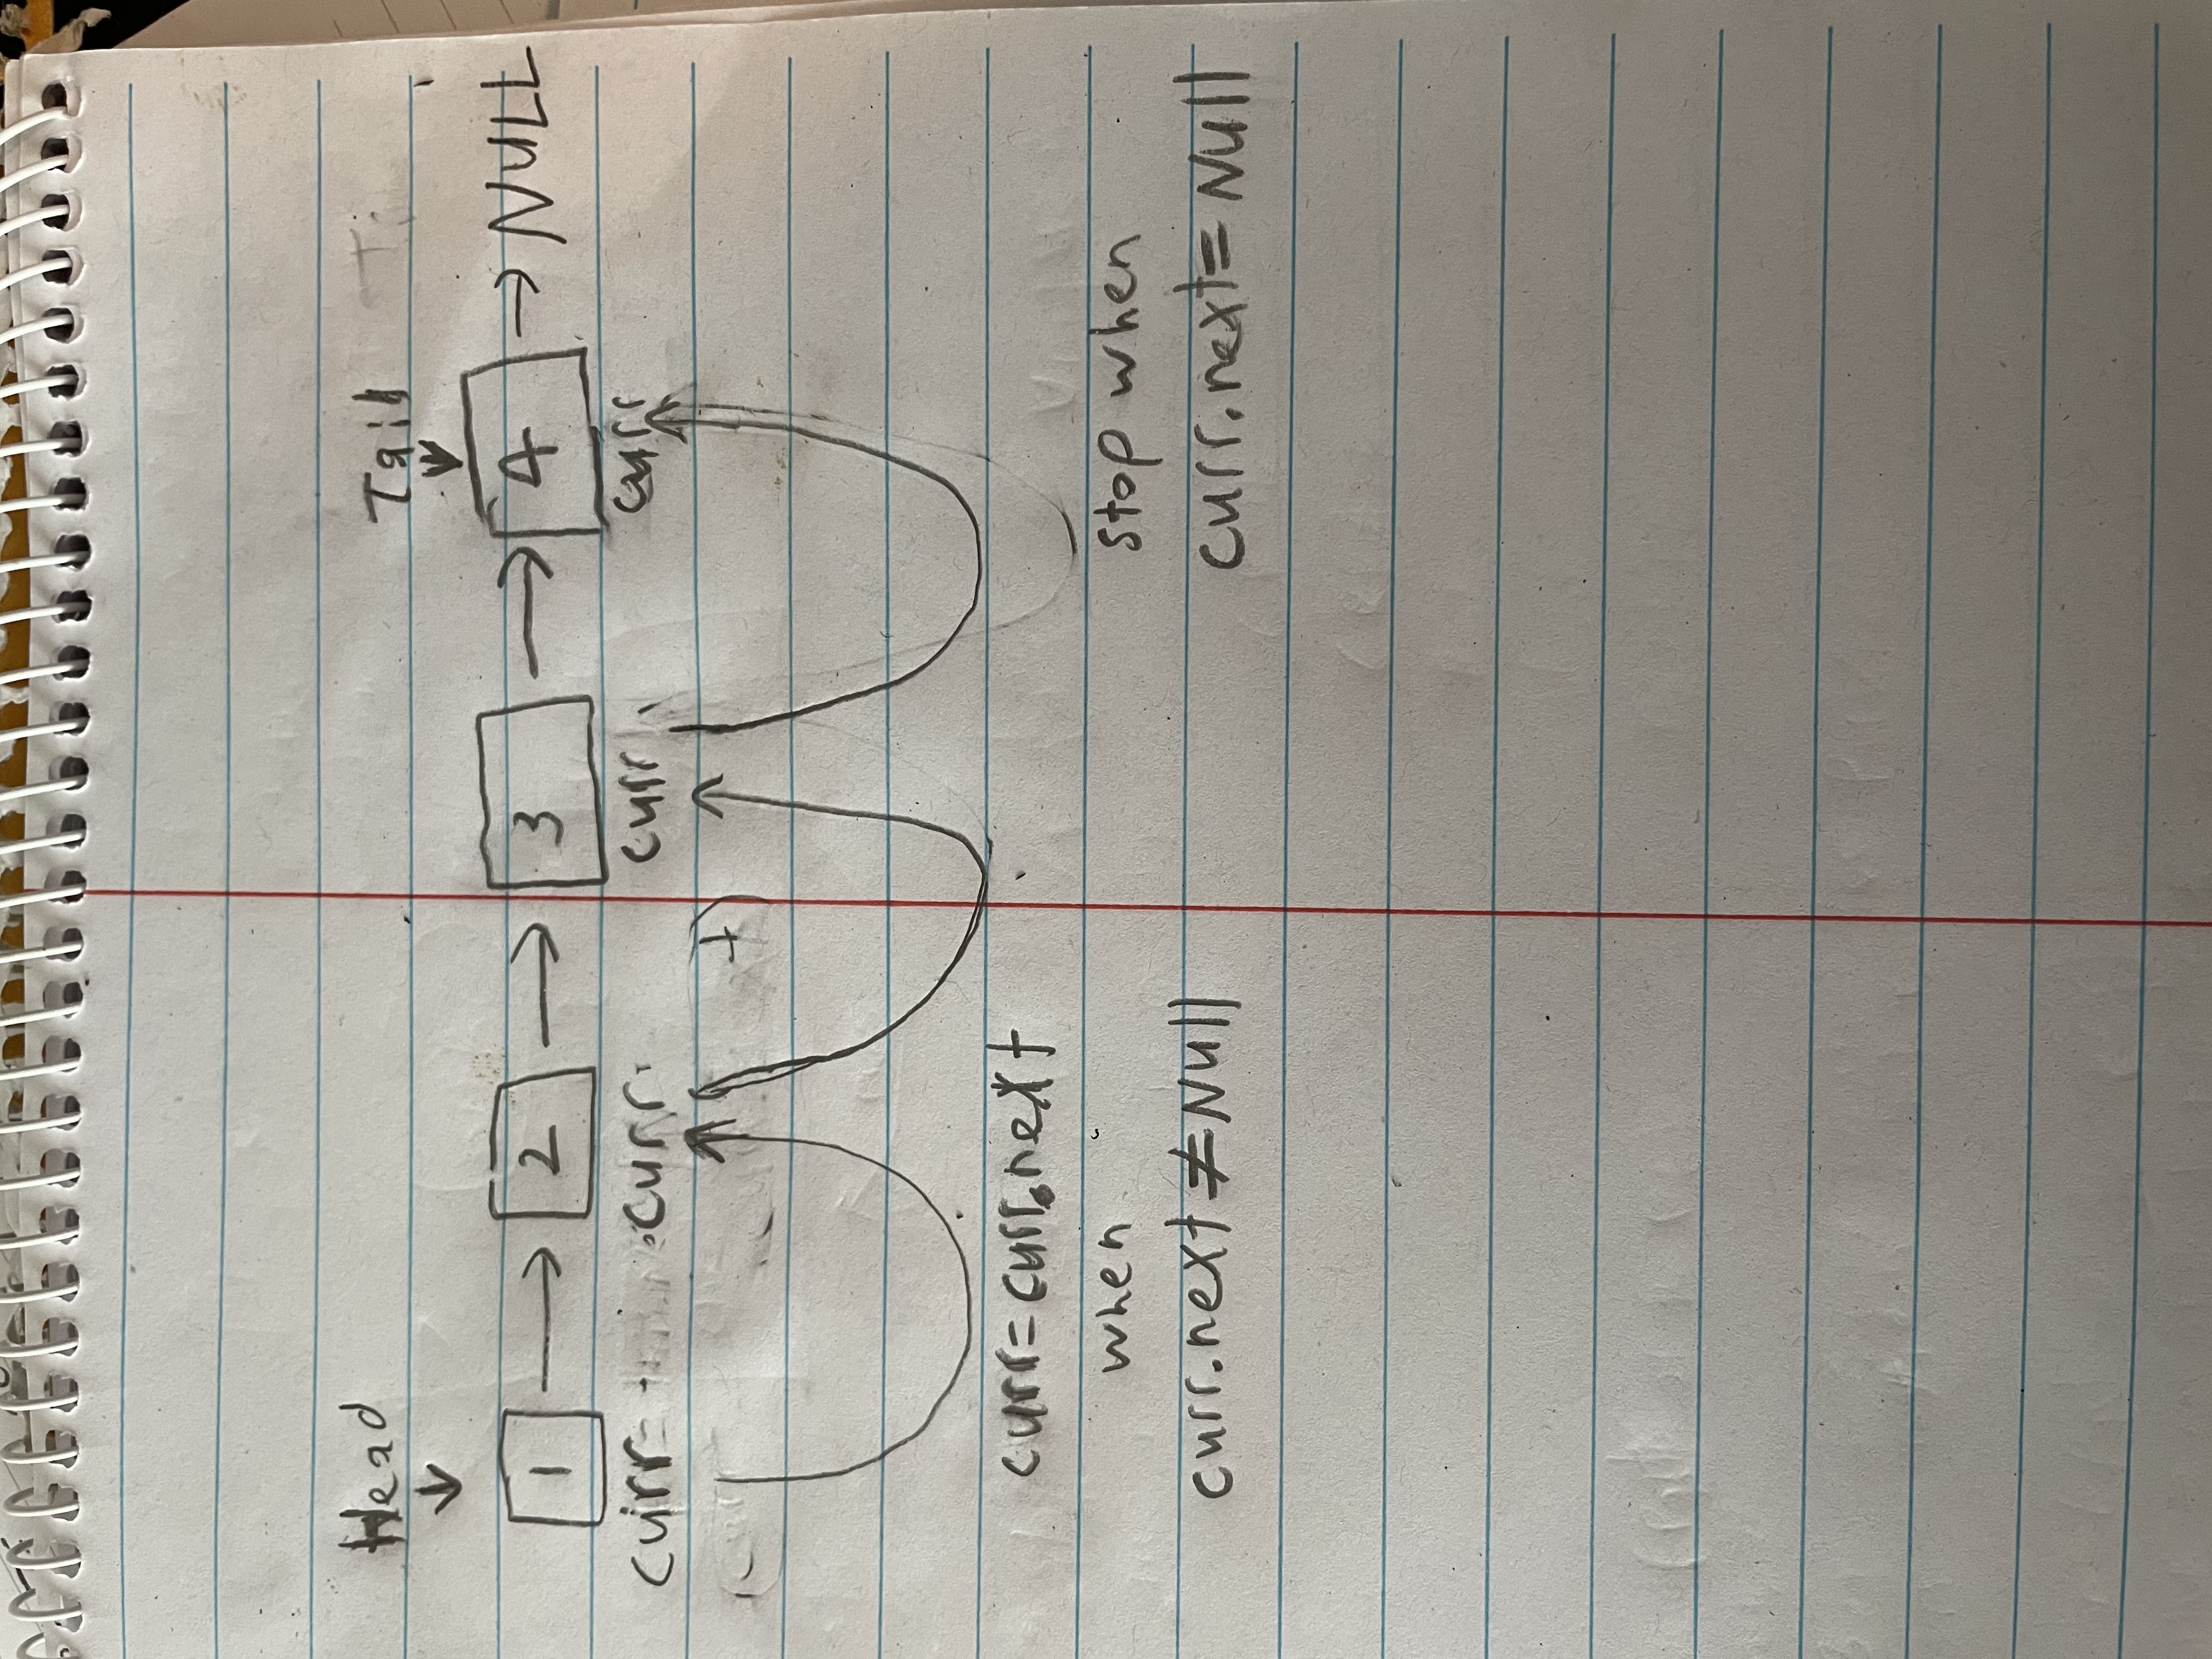 Head Tail
1 → 2 → 3 → 4 → NULL
curr curr curr curr
curr=curr.next
when
curr.next ≠ Null
stop when
curr.next = Null